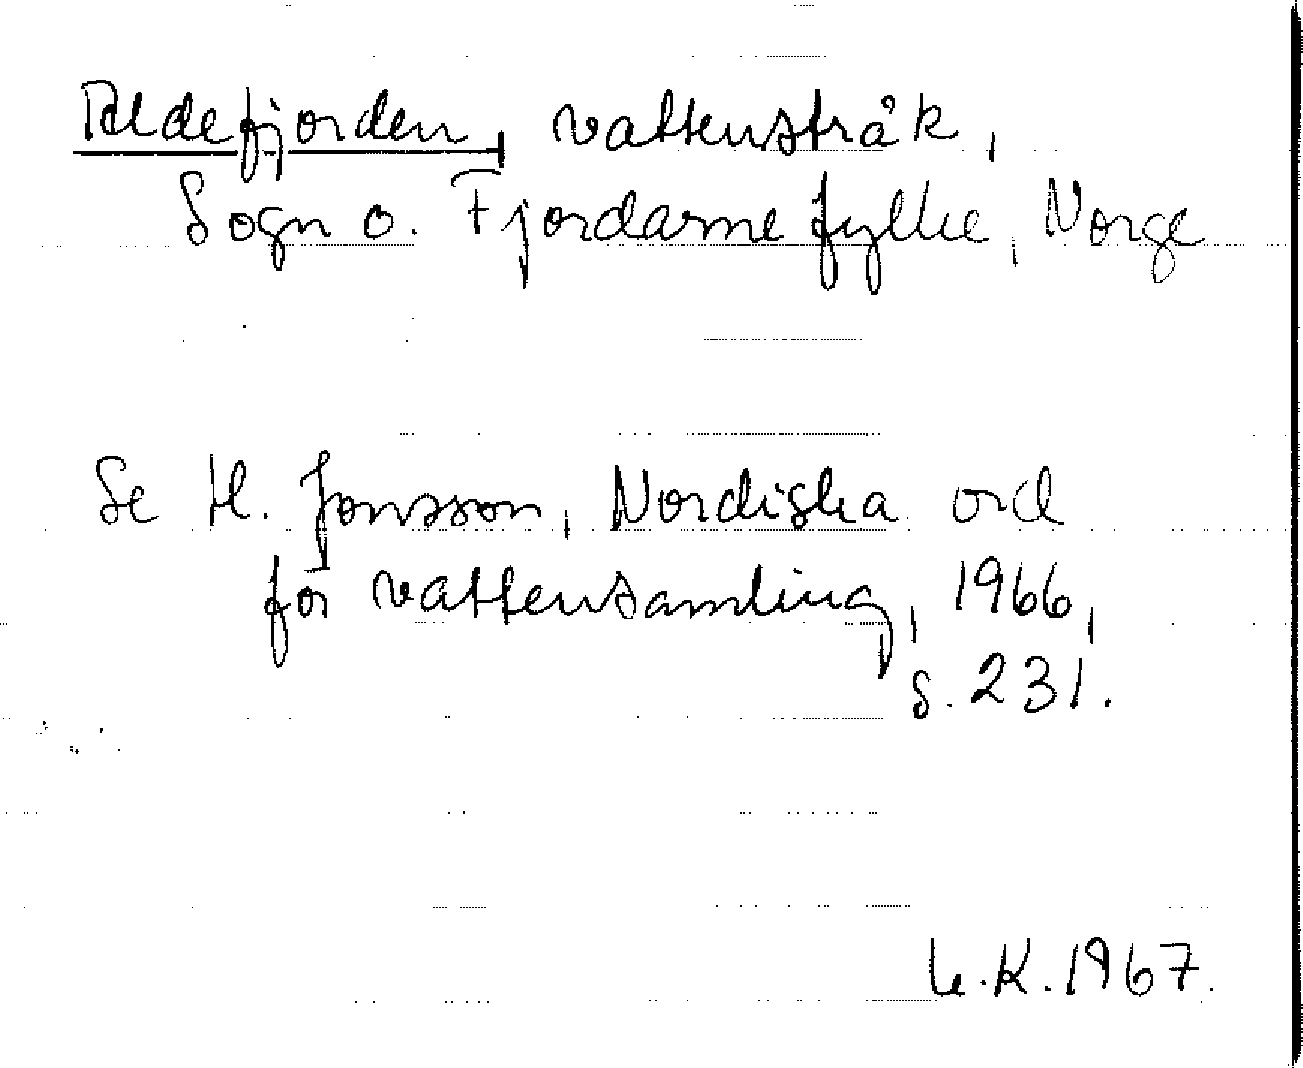 Aldefjorden, vattenstråk,
Sogn o. Fjordarne fylke, Norge
Se H. Jonsson, Nordiska ord
för vattensamling, 1966,
s. 231.
K. 1967.